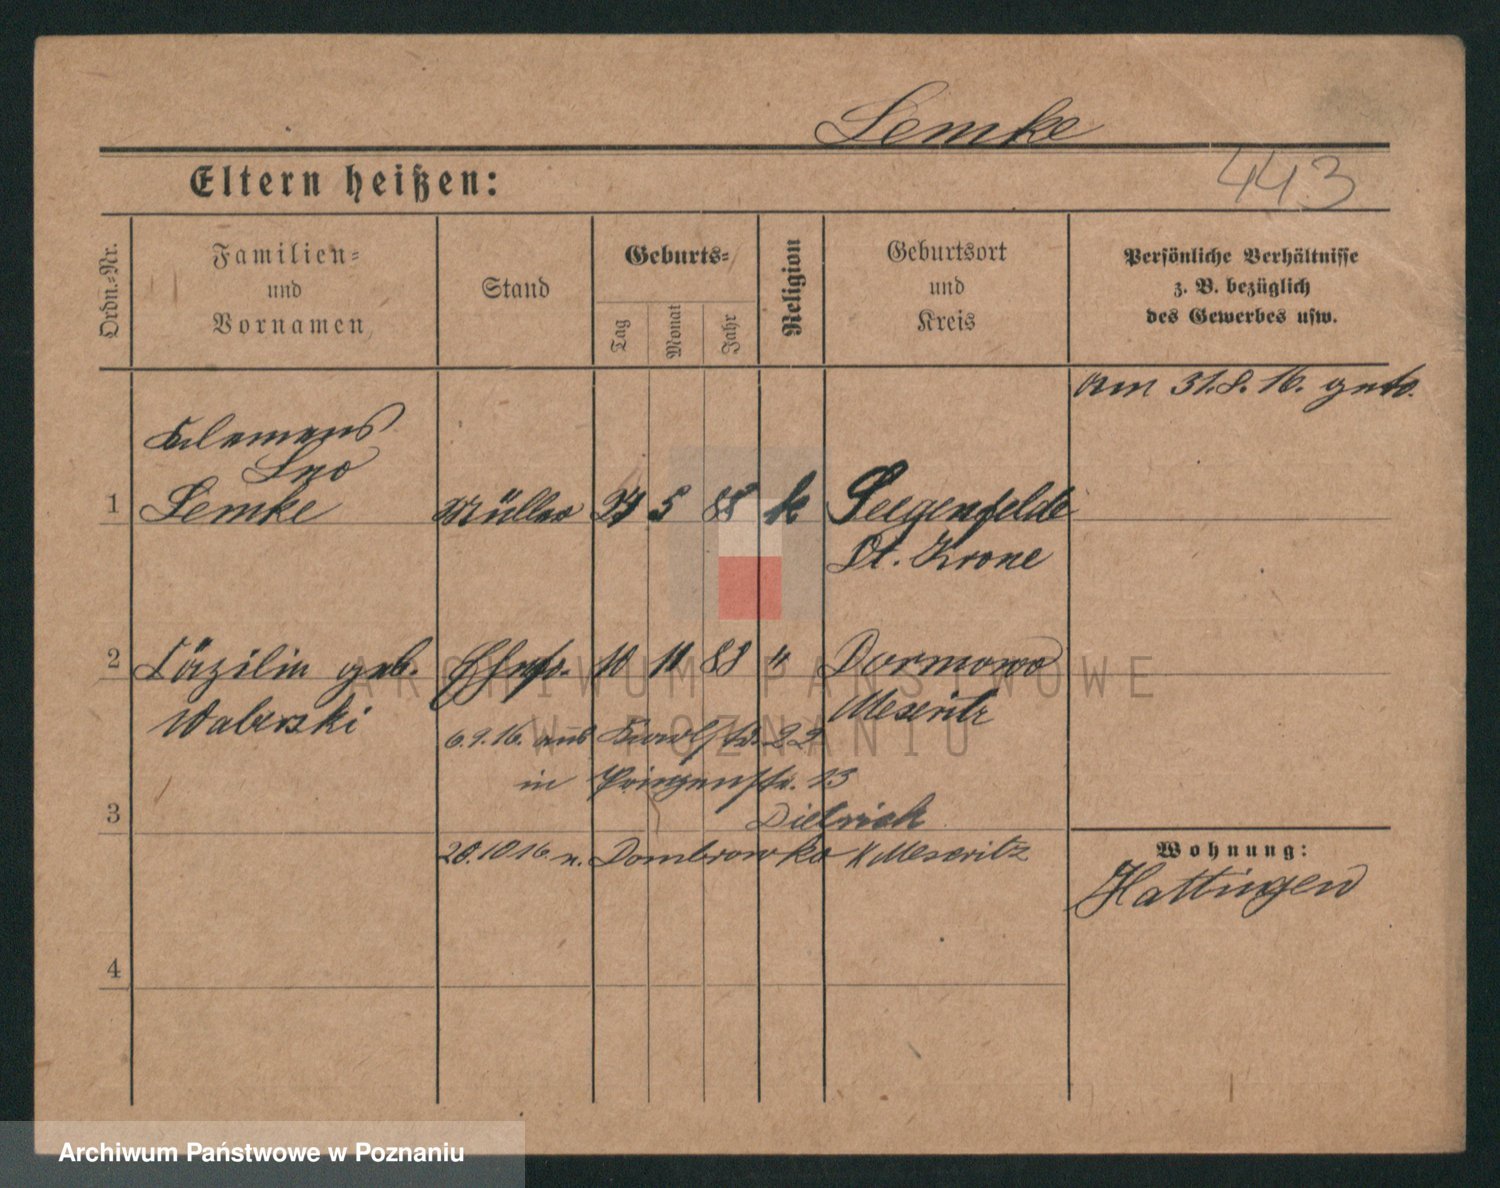 Lemke
443
Eltern heißen:
Ordn.-Nr.
Familien-
und
Vornamen
Stand
Geburts-
Tag
Monat
Jahr
Religion
Geburtsort
und
Kreis
Persönliche Verhältnisse
z. B. bezüglich
des Gewerbes usw.
am 31.8.16.
Klemens
Leo
1 Lemke Müller 5 88 k Seegenfelde
Dt. Krone
2 Cäzilia geb. Ehefr. 10 11 88 " Dormowo
Waberski Meseritz
6.9.16. aus 22
in Prinzenstr. 13
Dietrich
3
28.10.16 n. Dombrowka K Meseritz
Wohnung:
Hattingen
4
ARCHIWUM PAŃSTWOWE
W POZNANIU
Archiwum Państwowe w Poznaniu